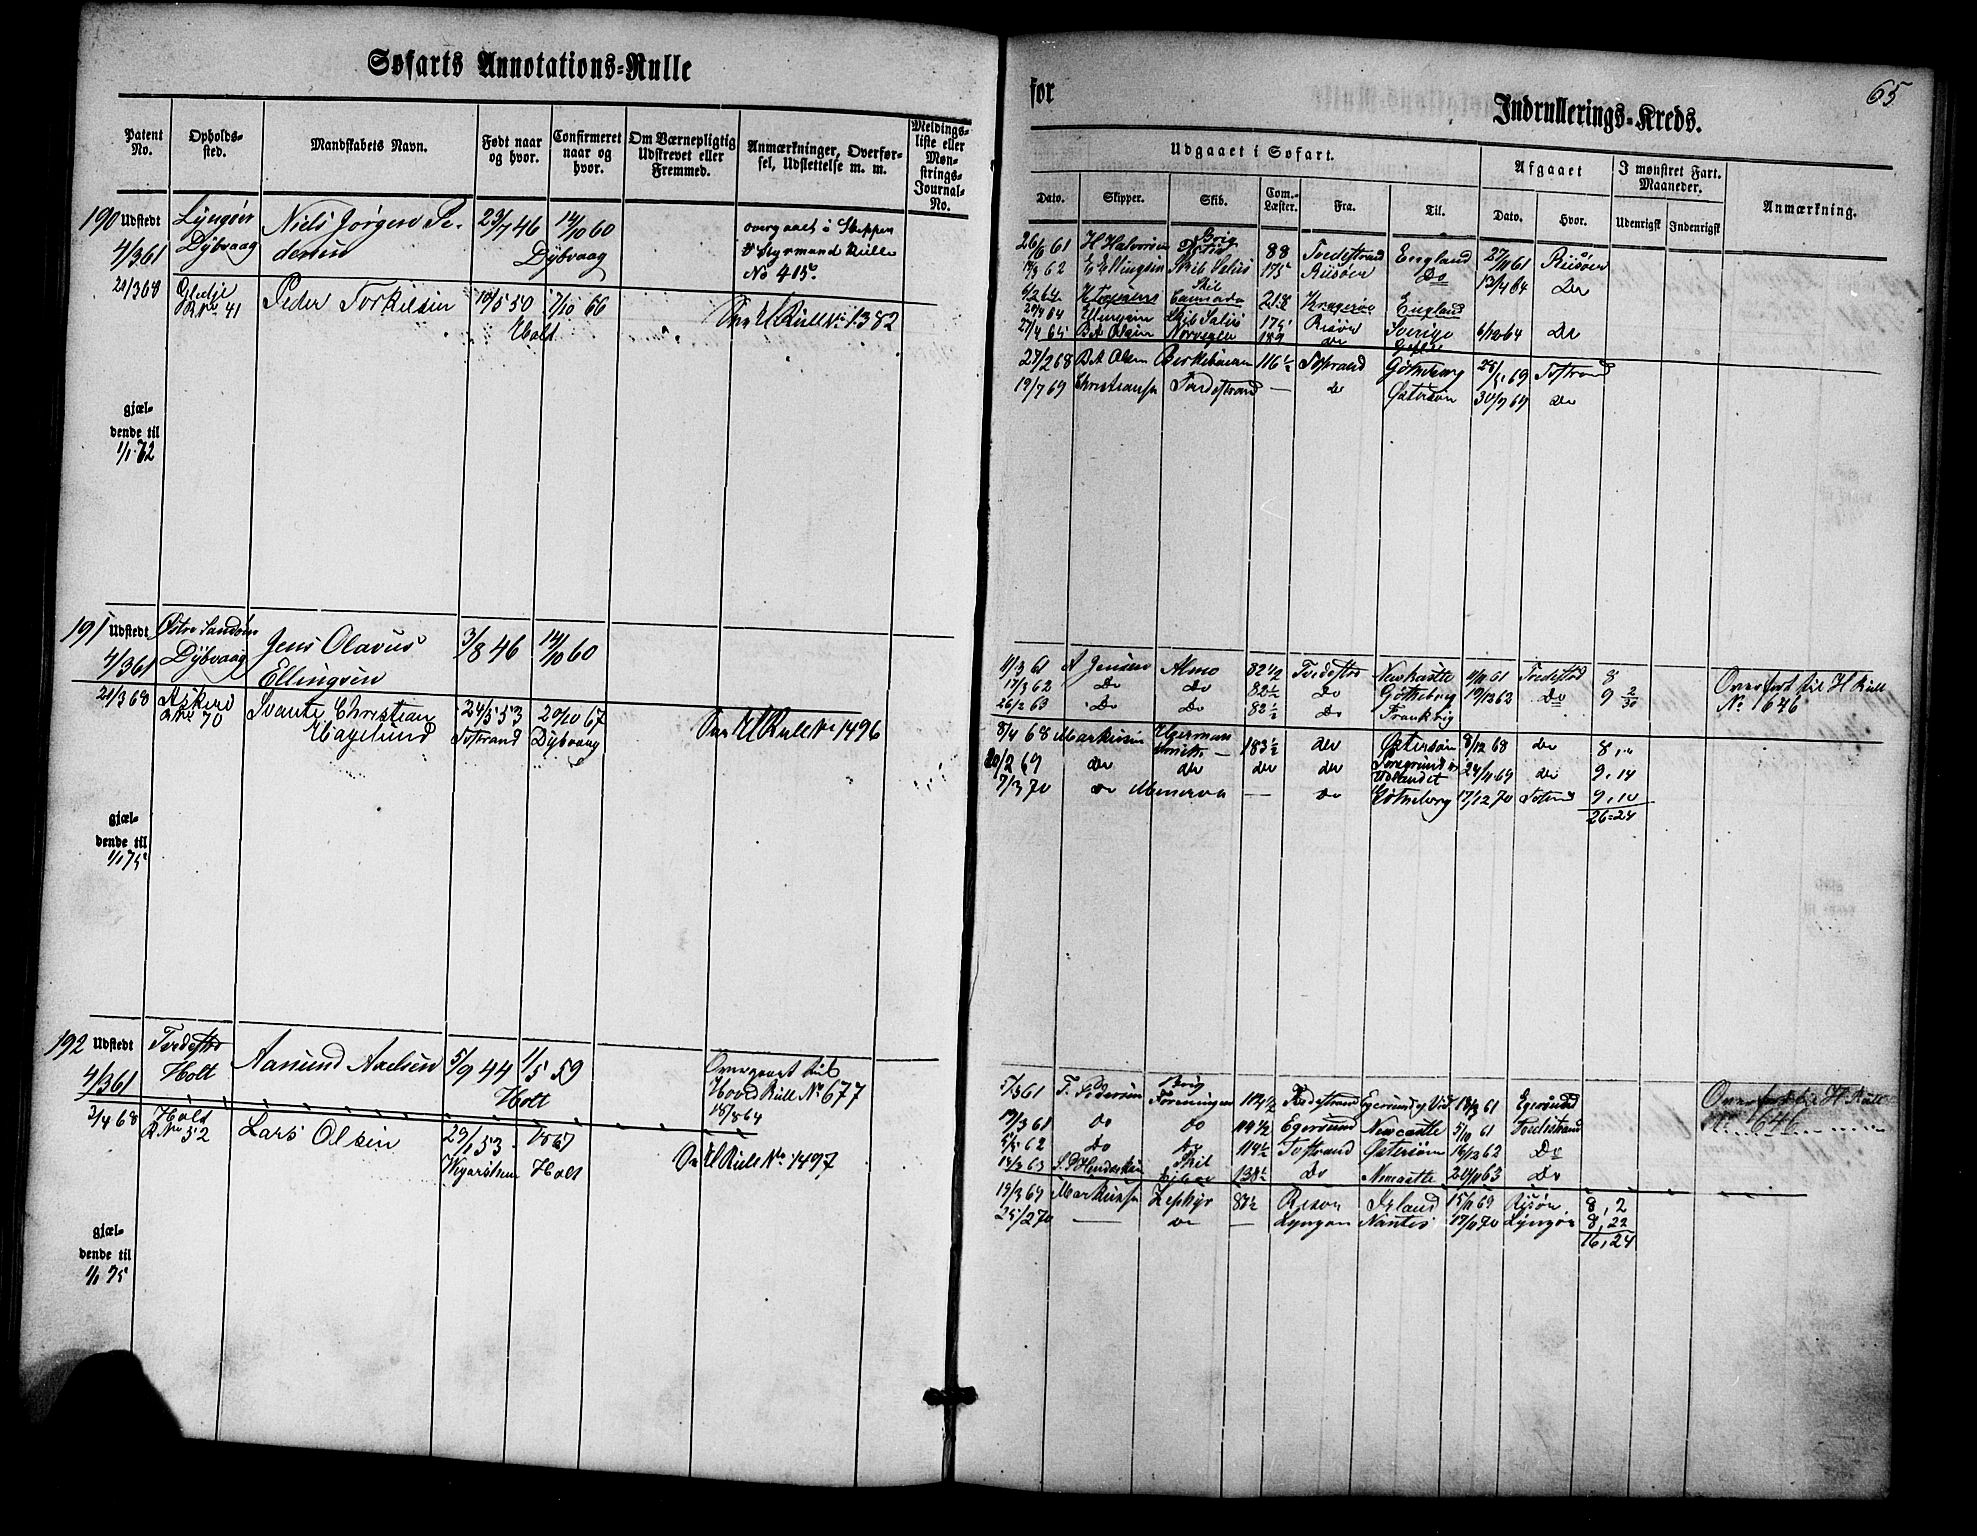 Søfarts Annotations=Rulle
Patent No.
Opholds-sted.
Mandskabets Navn.
Født naar og hvor.
Confirmeret naar og hvor.
Om Værnepligtig Udskrevet eller Fremmed.
Anmærkninger, Overførsel, Udslettelse m. m.
Meldings-liste eller Mønstrings-Journal-No.
190 Udstedt 4/3 61
Lyngøer Dybvaag
Niels Jørgen Pedersen
23/7 46
14/10 60
Dybvaag
overgaaet i Skipper & Styrmand Rulle No 415
20/3 68
R No 41
Peder Torkilsen
10/5 50
7/10 66
Holt
H Rull No 1382
gjæl-
dende til
1/1 72
191 Udstedt 4/3 61
Østre Sandøen Dybvaag
Jens Olavus Ellingsen
3/8 46
14/10 60
20/3 68
Askerø
R No 70
Svante Christian Hagelund
24/5 53
Tostrand
29/10 67
Dybvaag
H Rull No 1496
gjæl-
dende til
1/1 75
192 Udstedt 4/3 61
Tvedestrd Holt
Aanund Axelsen
5/9 44
1/5 59
Holt
Overgaaet til Hoved Rull No 677
18/8 64
3/4 68
Holt
R No 52
Lars Olsen
29/1 53
Holt
H Rull No 1497
gjæl-
dende til
1/1 75
for
Indrullerings=Kreds.
65
Udgaaet i Søfart.
Afgaaet
I mønstret Fart. Maaneder.
Anmærkning.
Dato.
Skipper.
Skib.
Com.-Læster.
Fra.
Til.
Dato.
Hvor.
Udenrigst
Indenrigst
26/6 61 H Halvorsen Brig 88 Tvedestrand England 27/11 61 Riisøer
14/3 62 E Ellingsen Skib 175 Riisøer Do 13/4 64 Do
218 Kragerøe England
Ellingsen Skib 175 Risør Sverige 6/10 64 Do
27/4 65 B A Olsen Norvegen 189 do Gefle
27/2 68 B A Olsen Birkebeinen 116½ Tostrand Gøtheborg 69 Tostrand
19/7 69 Christiansen Tvedestrand — do Østersøen 30/9 69 do
11/3 61 A Jensen Almo 82½ Tvedestrd Newkastle 61 Tvedestrd 8 Overført til H Rull No 646
17/3 62 Do Do 82½ Do Gøtheborg 19/12 62 Do 9 2/30
26/2 63 Do Do 82½ Do Frankrig
8/4 68 Markussen Herman 183½ do Østersøen 8/12 68 do 8,"
20/2 69 do do do do Udlandet 24/11 69 do 9,14
7/3 70 do Minerva — do Gøtheborg 17/12 70 9,10
26=24
5/3 61 T. Pedersen Brig Foreningen 114½ Tvedestrand Egersund 61 Egersund Overført til H Rull No 646
61 do do 114½ Egersund Newcastle 5/10 61 Tvedestrand
62 Do Do 114½ Tostrand Østersøen 14/12 62 Do
63 Skib 138½ Do Newcastle 63 Do
19/3 69 Markussen Zephyr Risør 69 Risør 8,2
25/2 70 — do — Lyngør Nantes 17/11 70 Lyngør 8,22
16,24